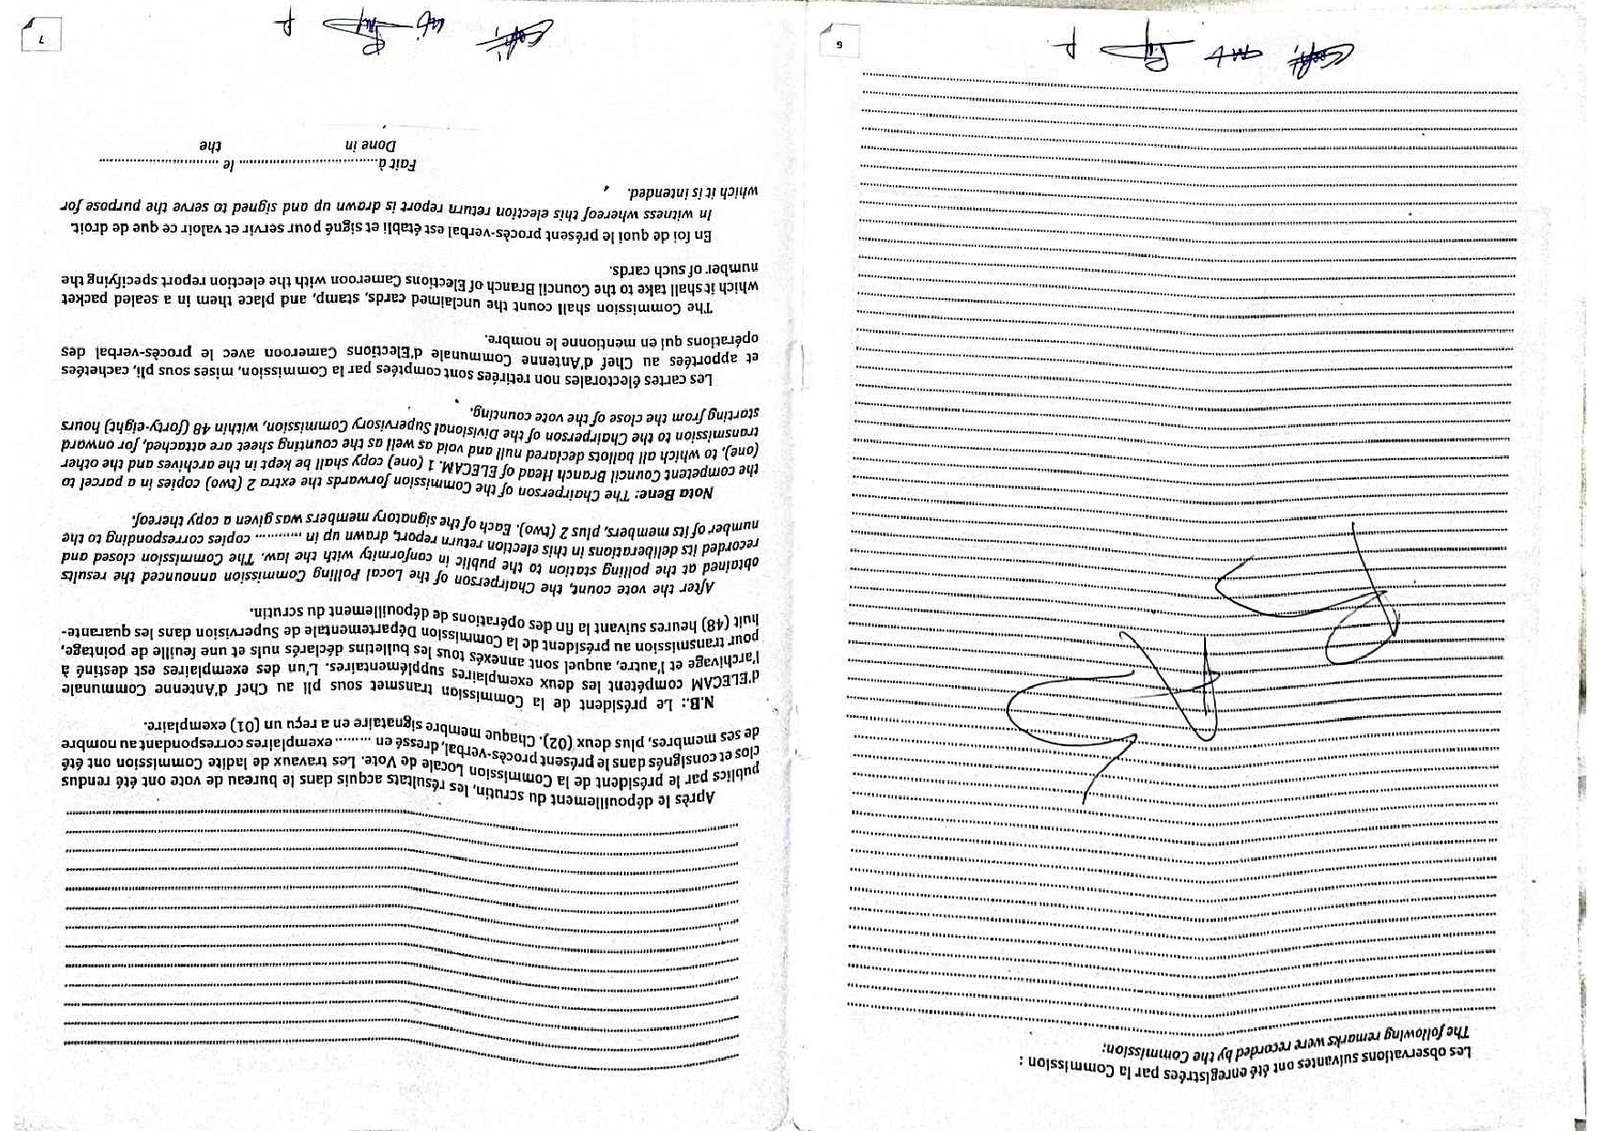 Les observations suivantes ont été enregistrées par la Commission :
The following remarks were recorded by the Commission:
RAS
6
Après le dépouillement du scrutin, les résultats acquis dans le bureau de vote ont été rendus
publics par le président de la Commission Locale de Vote. Les travaux de ladite Commission ont été
clos et consignés dans le présent procès-verbal, dressé en ......... exemplaires correspondant au nombre
de ses membres, plus deux (02). Chaque membre signataire en a reçu un (01) exemplaire.
N.B.: Le président de la Commission transmet sous pli au Chef d'Antenne Communale
d'ELECAM compétent les deux exemplaires supplémentaires. L'un des exemplaires est destiné à
l'archivage et l'autre, auquel sont annexés tous les bulletins déclarés nuls et une feuille de pointage,
pour transmission au président de la Commission Départementale de Supervision dans les quarante-
huit (48) heures suivant la fin des opérations de dépouillement du scrutin.
After the vote count, the Chairperson of the Local Polling Commission announced the results
obtained at the polling station to the public in conformity with the law. The Commission closed and
recorded its deliberations in this election return report, drawn up in ........... copies corresponding to the
number of its members, plus 2 (two). Each of the signatory members was given a copy thereof.
Nota Bene: The Chairperson of the Commission forwards the extra 2 (two) copies in a parcel to
the competent Council Branch Head of ELECAM. 1 (one) copy shall be kept in the archives and the other
(one), to which all ballots declared null and void as well as the counting sheet are attached, for onward
transmission to the Chairperson of the Divisional Supervisory Commission, within 48 (forty-eight) hours
starting from the close of the vote counting.
Les cartes électorales non retirées sont comptées par la Commission, mises sous pli, cachetées
et apportées au Chef d'Antenne Communale d'Elections Cameroon avec le procès-verbal des
opérations qui en mentionne le nombre.
The Commission shall count the unclaimed cards, stamp, and place them in a sealed packet
which it shall take to the Council Branch of Elections Cameroon with the election report specifying the
number of such cards.
En foi de quoi le présent procès-verbal est établi et signé pour servir et valoir ce que de droit.
In witness whereof this election return report is drawn up and signed to serve the purpose for
which it is intended.
Fait à.................................... le ..............................
Done in the
7